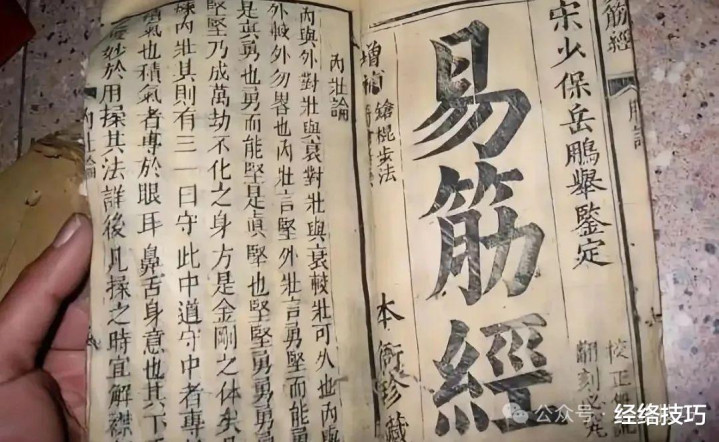 筋經
宋少保岳鵬舉鑒定
易筋經
校正
翻刻必究
增補
鎗棍步法
本衙珍藏
內壯論
內與外對壯與衰對壯與衰較壯可久也內與
外較外勿畧也內壯言堅外壯言勇堅而能勇
是真勇也勇而能堅是真堅也堅堅勇勇勇勇
堅堅乃成萬劫不化之身方是金剛之体矣凡
煉內壯其則有三一曰守此中道守中者專
積氣也積氣者專於眼耳鼻舌身意也其下
妙於用揉其法詳後凡揉之時宜解襟
內壯論
公众号·经络技巧